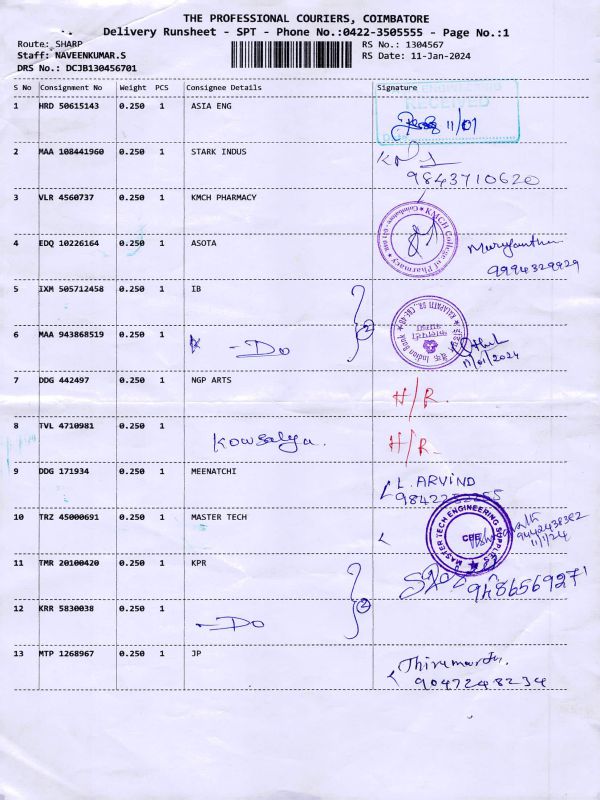 THE PROFESSIONAL COURIERS, COIMBATORE
Delivery Runsheet - SPT - Phone No.:0422-3505555 - Page No.:1
Route: SHARP
Staff: NAVEENKUMAR.S
DRS No.: DCJB130456701
RS No.: 1304567
RS Date: 11-Jan-2024
S No Consignment No Weight PCS Consignee Details Signature
1 HRD 50615143 0.250 1 ASIA ENG
ENGINEERING
RECEIVED
11/01
2 MAA 108441960 0.250 1 STARK INDUS
9843710620
3 VLR 4560737 0.250 1 KMCH PHARMACY
KMCH College of Pharmacy
4 EDQ 10226164 0.250 1 ASOTA
9994329929
5 IXM 505712458 0.250 1 IB
2
Indian Bank
6 MAA 943868519 0.250 1 - Do
11/01/2024
7 DDG 442497 0.250 1 NGP ARTS H/R.
8 TVL 4710981 0.250 1 Kowsalya. H/R.
9 DDG 171934 0.250 1 MEENATCHI
L. ARVIND
10 TRZ 45000691 0.250 1 MASTER TECH
MASTER TECH ENGINEERING SUPPLIES
CBE
9442438382
11/1/24
11 TMR 20100420 0.250 1 KPR
9486569271
2
12 KRR 5830038 0.250 1 - Do
13 MTP 1268967 0.250 1 JP
9047248234